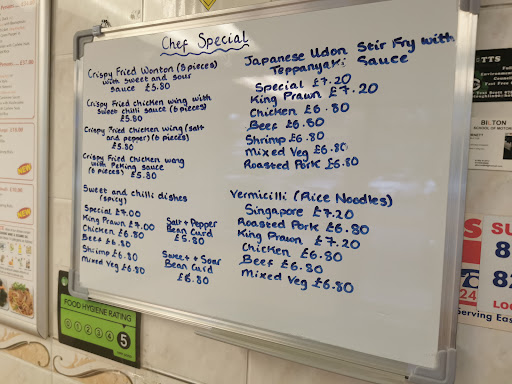 Chef Special
Crispy Fried Wonton (8 pieces)
with sweet and sour
sauce £5.80
Crispy Fried chicken wing with
sweet chilli sauce (6 pieces)
£5.80
Crispy Fried Chicken wing (salt
and pepper) (6 pieces)
£5.80
Crispy Fried Chicken wang
with Peking sauce
(6 pieces) £5.80
Sweet and chilli dishes
(spicy)
Special £7.00
King Prawn £7.00
Chicken £6.80
Beef £6.80
Shrimp £6.80
Mixed Veg £6.80
Salt + Pepper
Bean Curd
£5.80
Sweet + Sour
Bean Curd
£6.80
Japanese Udon Stir Fry with
Teppanyaki Sauce
Special £7.20
King Prawn £7.20
Chicken £6.80
Beef £6.80
Shrimp £6.80
Mixed Veg £6.80
Roasted Pork £6.80
Vermicilli (Rice Noodles)
Singapore £7.20
Roasted Pork £6.80
King Prawn £7.20
Chicken £6.80
Beef £6.80
Mixed Veg £6.80
FOOD HYGIENE RATING
0 1 2 3 4 5
NEW
NEW
ETTS
BILTON
SCHOOL OF MOTORING
SU
8
82
24
Serving Eas